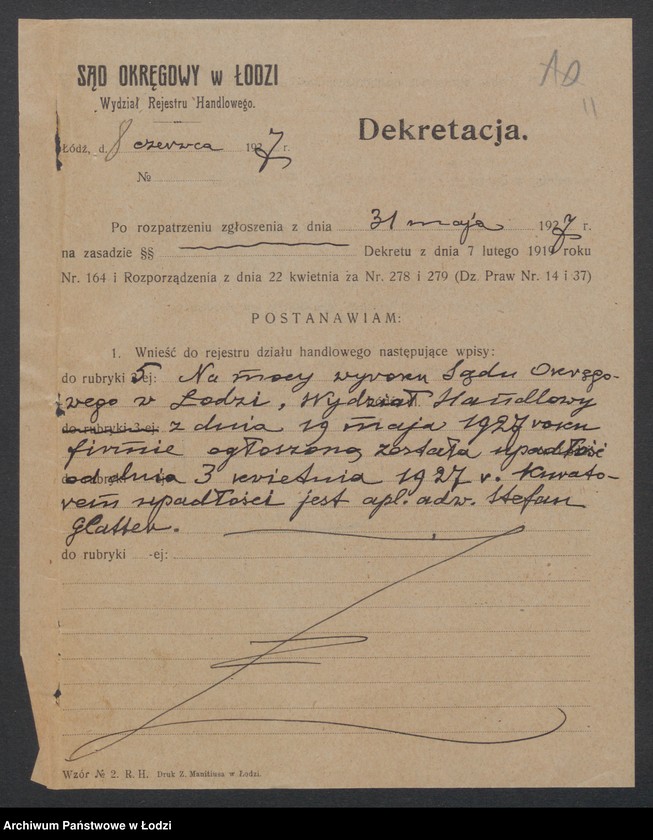 SĄD OKRĘGOWY w ŁODZI
Wydział Rejestru Handlowego.
11
Dekretacja.
Łódź, d. 8 czerwca 1927 r.
№
Po rozpatrzeniu zgłoszenia z dnia 31 maja 1927 r.
na zasadzie §§ Dekretu z dnia 7 lutego 1919 roku
Nr. 164 i Rozporządzenia z dnia 22 kwietnia za Nr. 278 i 279 (Dz. Praw Nr. 14 i 37)
POSTANAWIAM:
1. Wnieść do rejestru działu handlowego następujące wpisy:
do rubryki 5 ej: Na mocy wyroku Sądu Okręgo-
wego w Łodzi, Wydział Handlowy
do rubryki 3-ej z dnia 19 maja 1927 roku
firmie ogłoszoną została upadłość
od dnia 3 kwietnia 1927 r. Kurato-
rem upadłości jest apl. adw. Stefan
Glatter.
do rubryki -ej:
Wzór № 2. R. H. Druk Z. Manitiusa w Łodzi.
Archiwum Państwowe w Łodzi